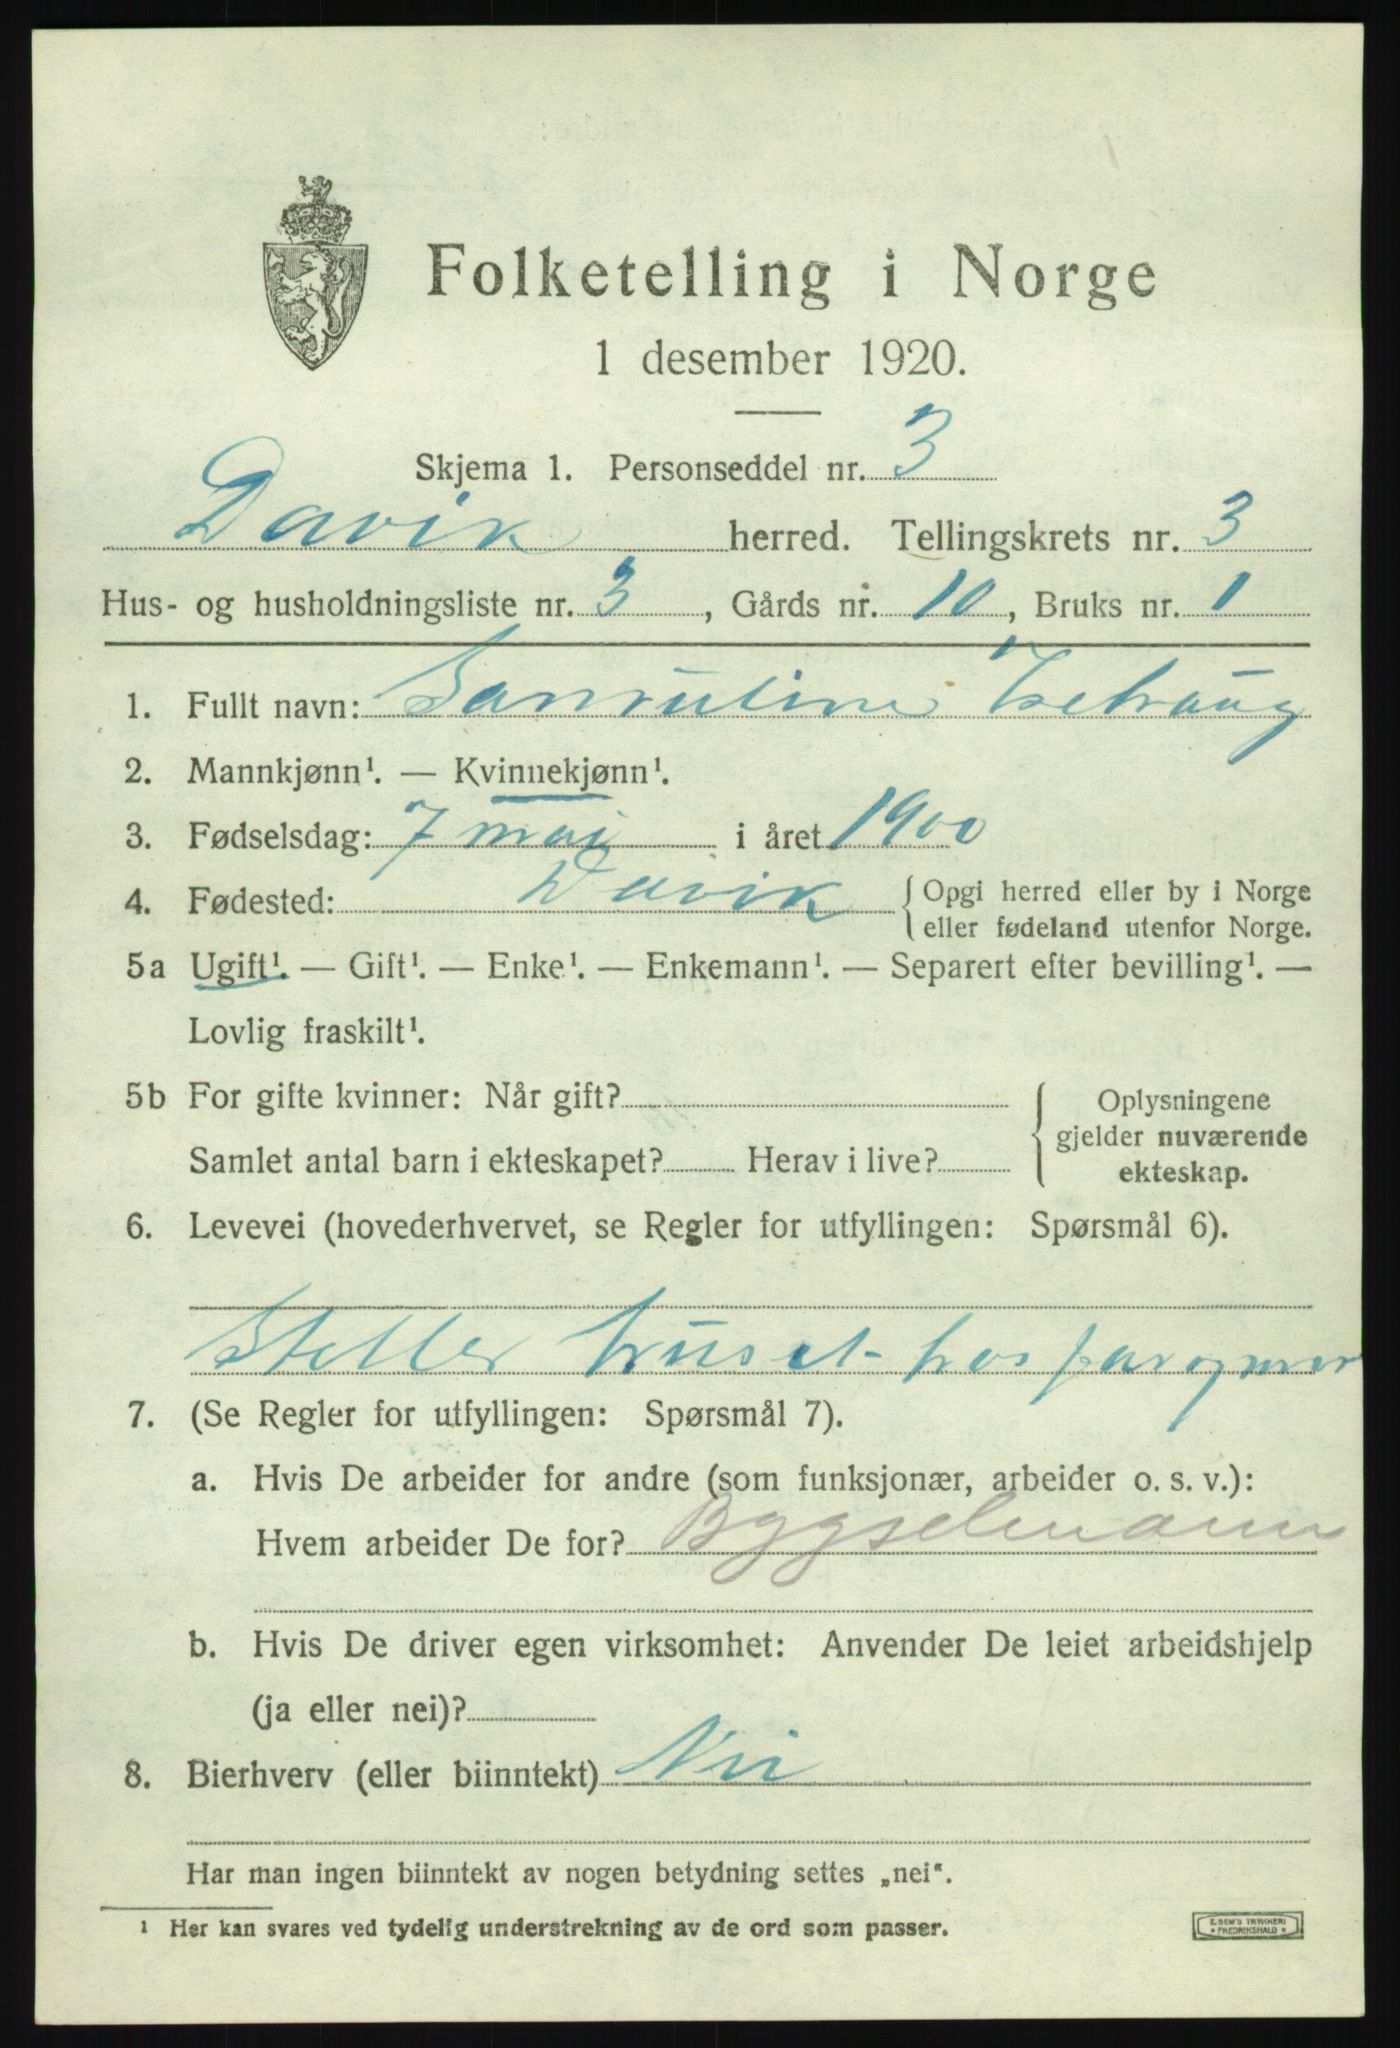 Folketelling i Norge
1 desember 1920.
Skjema 1. Personseddel nr. 3
Davik herred. Tellingskrets nr. 3
Hus- og husholdningsliste nr. 3, Gårds nr. 10, Bruks nr. 1
1. Fullt navn:
2. Mannkjønn¹. — Kvinnekjønn¹.
3. Fødselsdag: 7 mai i året 1900
4. Fødested: Davik {Opgi herred eller by i Norge
eller fødeland utenfor Norge.
5a Ugift¹. — Gift¹. — Enke¹. — Enkemann¹. — Separert efter bevilling¹. —
Lovlig fraskilt¹.
5b For gifte kvinner: Når gift?
Samlet antal barn i ekteskapet? Herav i live?
Oplysningene
gjelder nuværende
ekteskap.
6. Levevei (hovederhvervet, se Regler for utfyllingen: Spørsmål 6).
Steller huset hos far og mor
7. (Se Regler for utfyllingen: Spørsmål 7).
a. Hvis De arbeider for andre (som funksjonær, arbeider o. s. v.):
Hvem arbeider De for? Byggselmann
b. Hvis De driver egen virksomhet: Anvender De leiet arbeidshjelp
(ja eller nei)?
8. Bierhverv (eller biinntekt) Nei
Har man ingen biinntekt av nogen betydning settes „nei“.
¹ Her kan svares ved tydelig understrekning av de ord som passer.
E. SEM'S TRYKKERI
FREDRIKSHALD